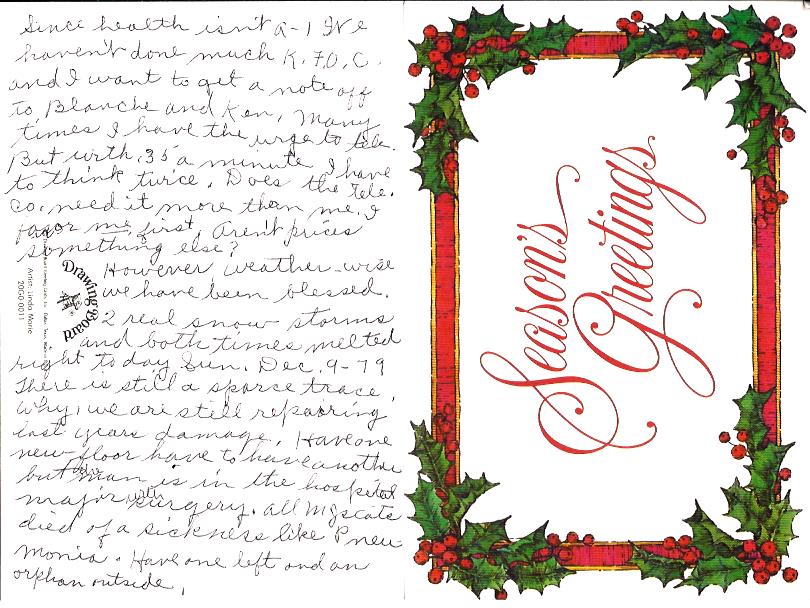 Since health isn't A-1 I've
haven't done much K.F.O.C.
and I want to get a note off
to Blanche and Ken, Many
times I have the urge to tele.
But with .35 a minute I have
to think twice. Does the Tele.
Co. need it more than me. I
favor me first. Aren't prices
something else?
However weather-wise
we have been blessed.
2 real snow storms
and both times melted
right today Sun. Dec. 9-79
There is still a sparce trace,
Why, we are still repairing
last years damage. Have one
new floor have to have another
but man is in the hospital
major with surgery. All my cats
died of a sickness like Pneu-
monia. Have one left and an
orphan outside.
Drawing Board
Artist: Linda Marie
20G0-0011
Season's
Greetings